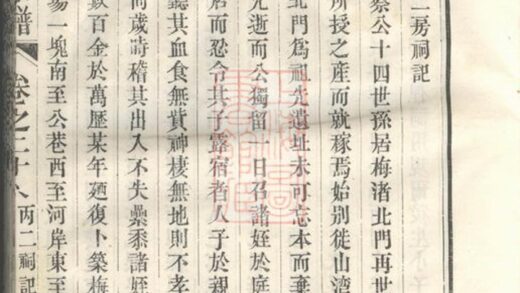 二房祠記
祭公十四世孫居梅渚北門再世
所授之産而就稼焉始別徙山灣
北門爲祖先遺址未可忘本而棄
兄逝而公獨留一日召諸姪於庭
居而忍令其子露宿者人子於親
聽其血食無貲神棲無地則不孝
向歲時稽其出入不失纍黍諸姪
數百金於萬歷某年廼復卜築梅
場一塊南至公巷西至河岸東至
譜 卷之二十八 丙二祠記